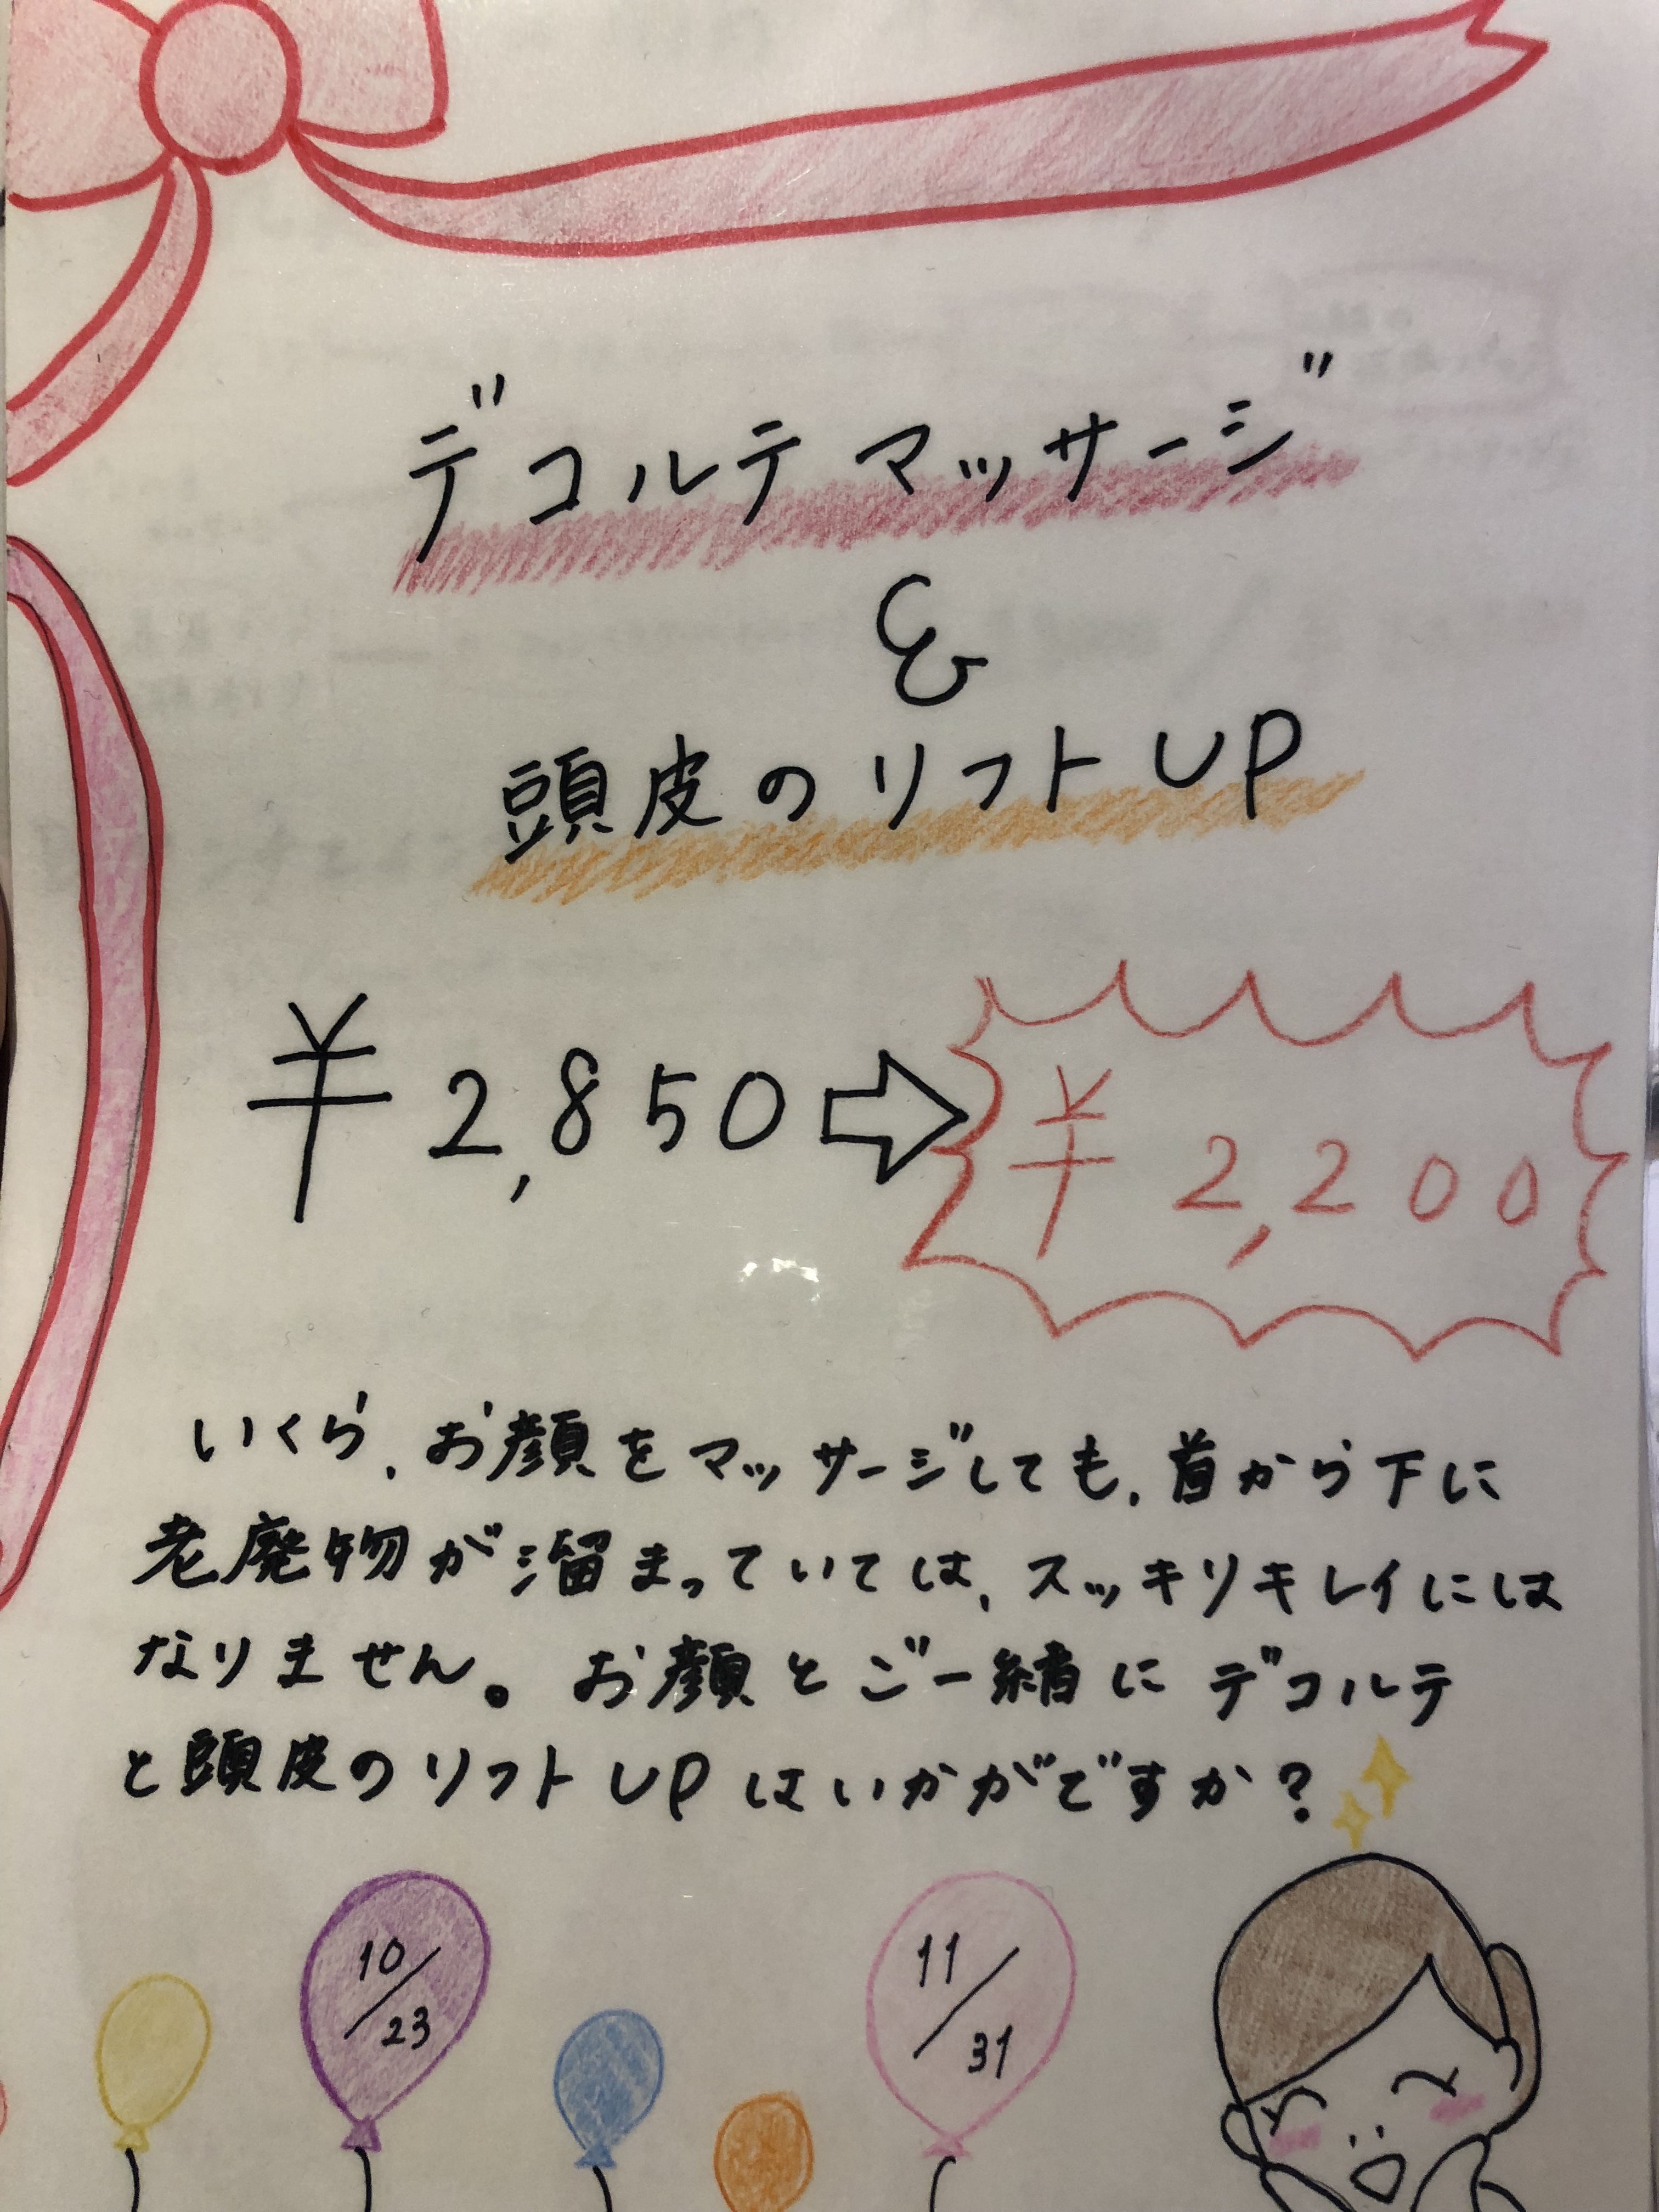 デコルテマッサージ
&
頭皮のリフトUP
¥2,850⇨¥2,200
いくら、お顔をマッサージしても、首から下に
老廃物が溜まっていては、スッキリキレイには
なりません。お顔とご一緒にデコルテ
と頭皮のリフトUPはいかがですか？
10/23
11/31